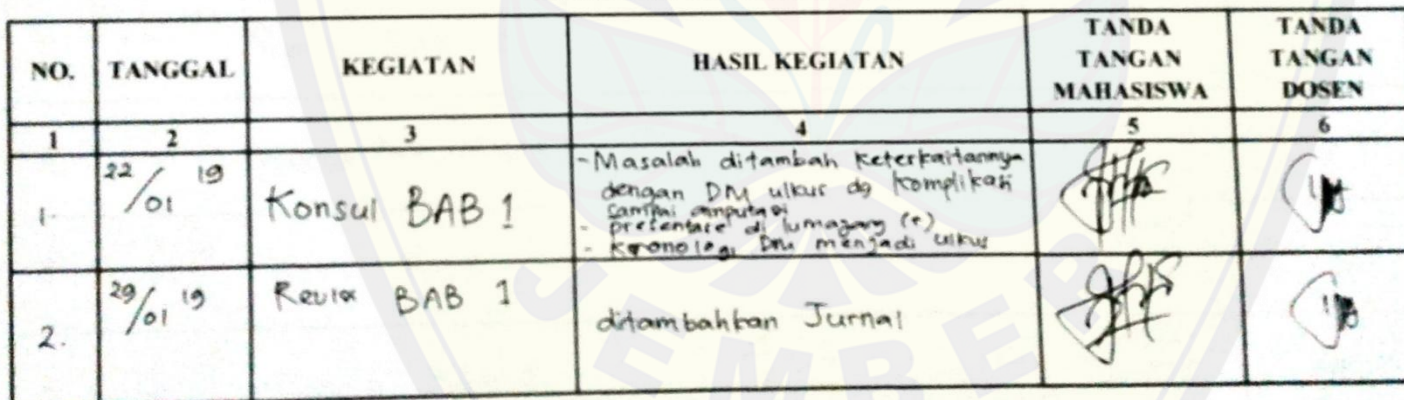 NO. TANGGAL KEGIATAN HASIL KEGIATAN TANDA TANGAN MAHASISWA TANDA TANGAN DOSEN
1 2 3 4 5 6
1. 22/01 19 Konsul BAB 1 - Masalah ditambah keterkaitannya
dengan DM ulkus dg komplikasi
sampai amputasi
- presentase di lumajang (+)
- kronologi DM menjadi ulkus
2. 29/01 19 BAB 1 ditambahkan Jurnal
JEMBER